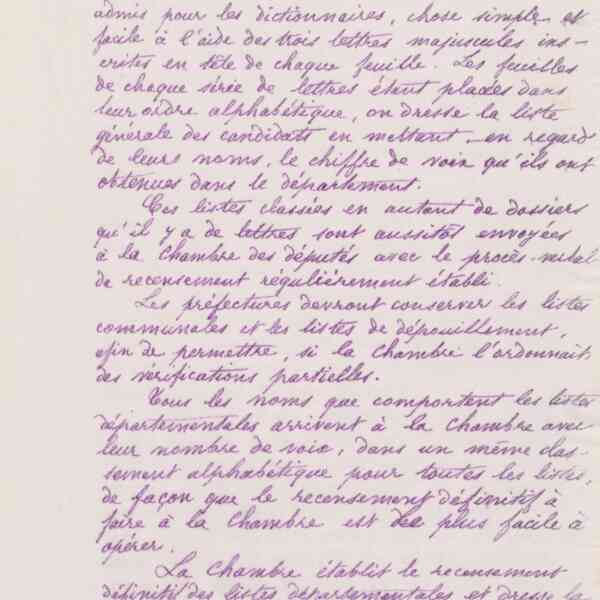 admis pour les dictionnaires, chose simple et
facile à l'aide des trois lettres majuscules ins-
crites en tête de chaque feuille. Les feuilles
de chaque série de lettres étant placées dans
leur ordre alphabétique, on dresse la liste
générale des candidats en mettant, en regard
de leurs noms, le chiffre de voix qu'ils ont
obtenues dans le département.
Ces listes classées en autant de dossiers
qu'il y a de lettres sont aussitôt envoyées
à la Chambre des députés avec le procès-verbal
de recensement régulièrement établi.
Les préfectures devront conserver les listes
communales et les listes de dépouillement,
afin de permettre, si la Chambre l'ordonnait,
des vérifications partielles.
Tous les noms que comportent les listes
départementales arrivent à la Chambre avec
leur nombre de voix, dans un même clas-
sement alphabétique pour toutes les listes,
de façon que le recensement définitif à
faire à la Chambre est des plus facile à
opérer.
La Chambre établit le recensement
définitif des listes départementales et dresse la